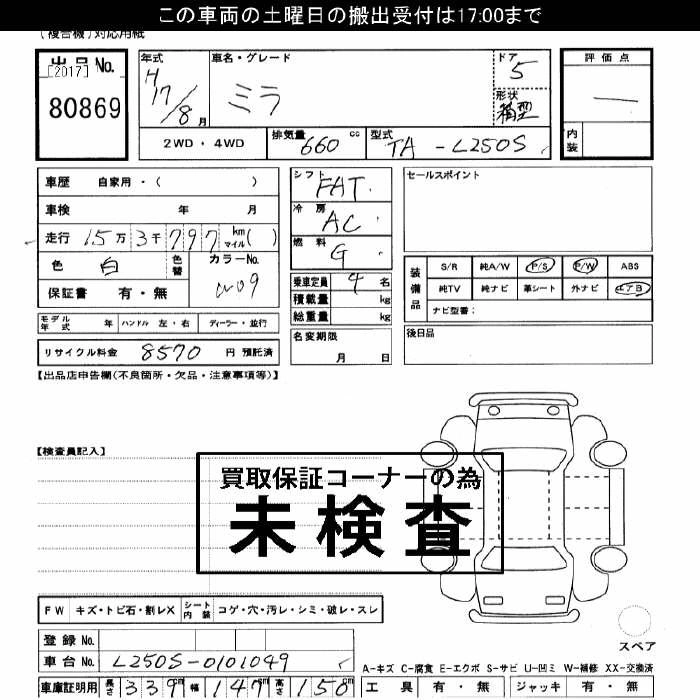 この車両の土曜日の搬出受付は17:00まで
(複合機)対応用紙
出品No.
[2017]
80869
年式 H17/8月
車名・グレード
ミラ
ドア 5
形状 箱型
評価点
—
内装
2WD・4WD
排気量 660 cc
型式 TA-L250S
車歴 自家用・( )
車検 年 月
走行 15万3千797 km マイル( )
色 白 色替
カラーNo. W09
保証書 有・無
シフト FAT
冷房 AC
燃料 G
乗車定員 4名
積載量 kg
総重量 kg
名変期限
月 日
セールスポイント
装備品
S/R 純A/W P/S P/W ABS
純TV 純ナビ 革シート 外ナビ エアB
ナビ型番:
後日品
モデル年式 年 ハンドル 左・右 ディーラー・並行
リサイクル料金 8570 円 預託済
【出品店申告欄(不良箇所・欠品・注意事項等)】
【検査員記入】
買取保証コーナーの為
未検査
FW キズ・トビ石・割レX シート内装 コゲ・穴・汚レ・シミ・破レ・スレ
スペア
登録No.
車台No. L250S-0101049
A-キズ C-腐食 E-エクボ S-サビ U-凹ミ W-補修 XX-交換済
車庫証明用 長さ 339cm 幅 147cm 高さ 150cm
工具 有・無 ジャッキ 有・無